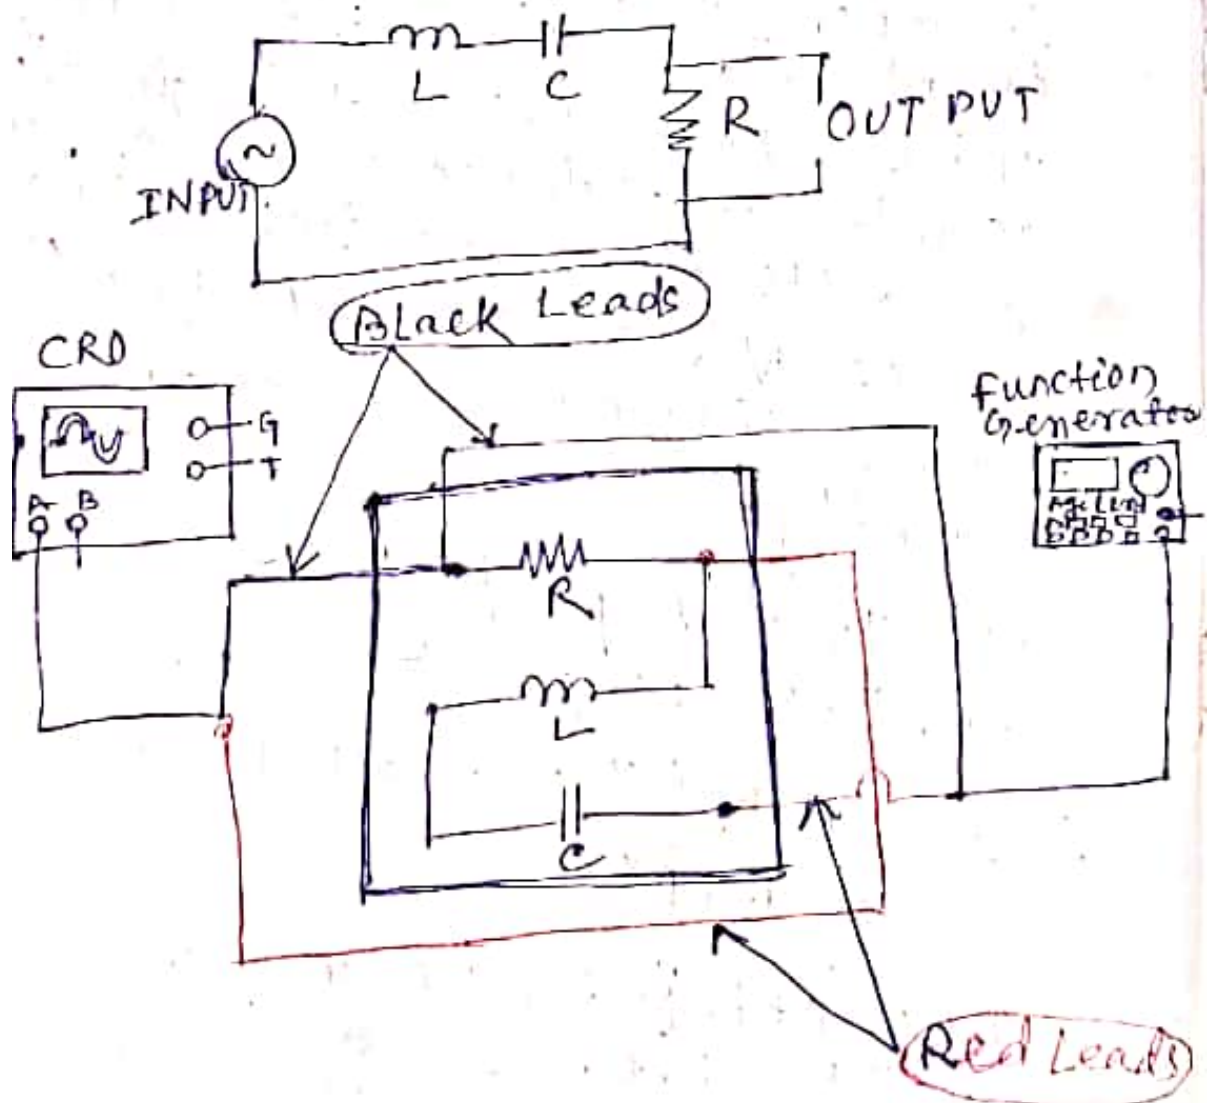 L
C
R
OUT PUT
INPUT
Black Leads
CRO
G
T
A B
function
Generator
Agilent
R
L
C
Red Leads